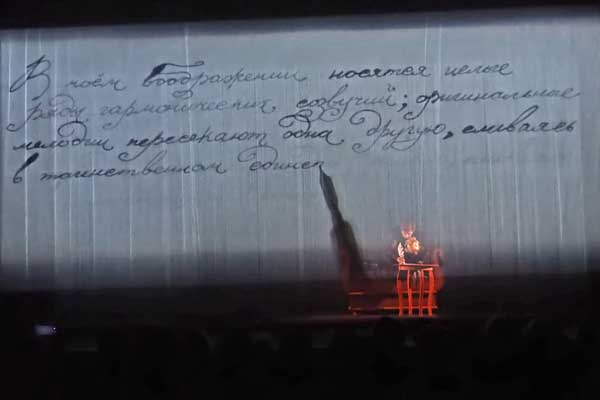 В моём воображении носятся целые
ряды гармонических созвучий; оригинальные
мелодии пересекают одна другую, сливаясь
в таинственном единст